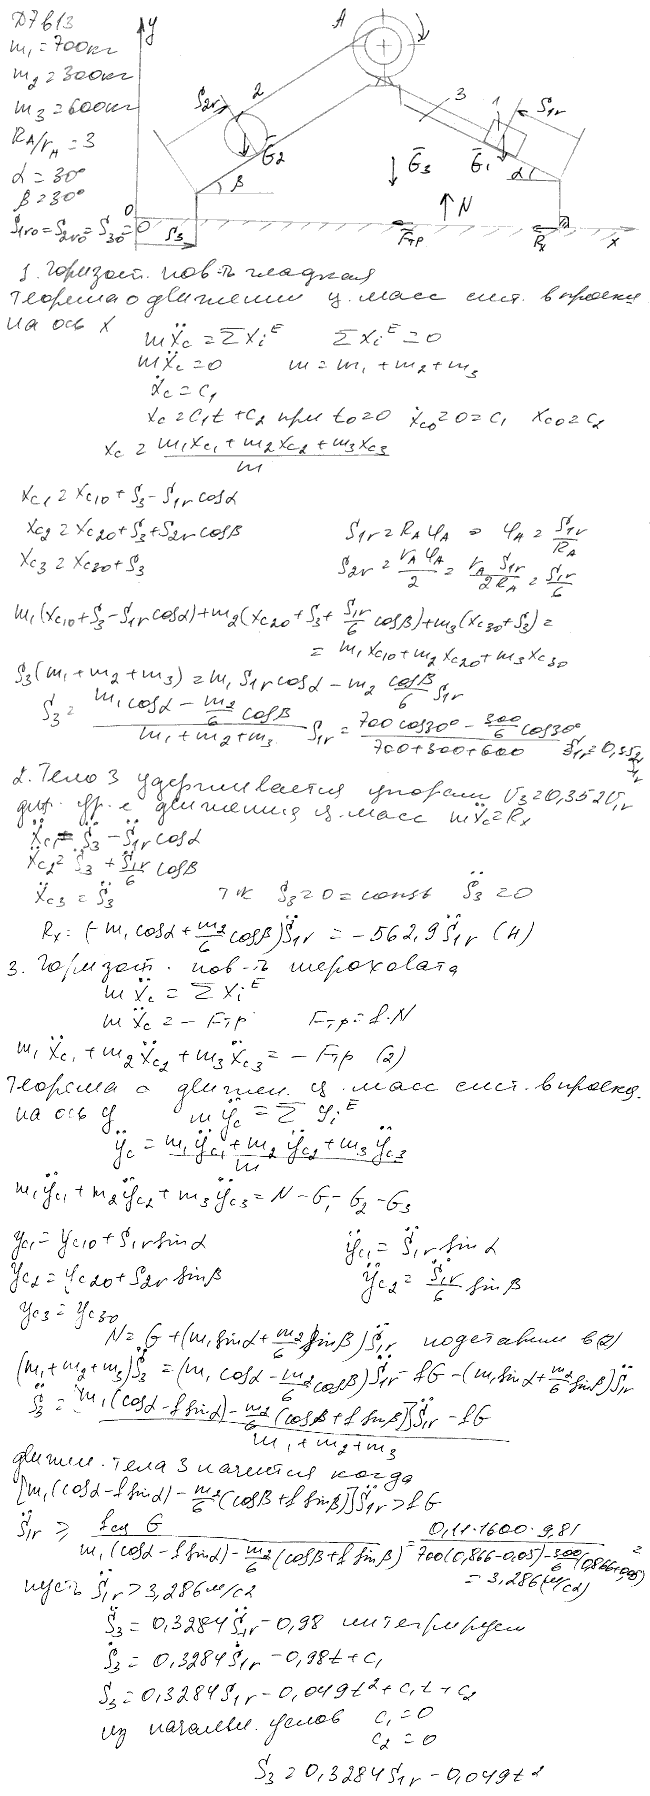 Д7 в13
m₁ = 700кг
m₂ = 300кг
m₃ = 600кг
R_A/r_A = 3
α = 30°
β = 30°
S₁r₀ = S₂r₀ = S₃₀ = 0
y
A
S₂r
2
3
1
S₁r
G̅₂
G̅₃
G̅₁
α
β
N
0
S₃
Fтр
Rx
x
1. Горизонт. пов-ть гладкая
Теорема о движении ц. масс сист. в проекц.
на ось X
mẍc = ΣXiᴱ ΣXiᴱ = 0
mẍc = 0 m = m₁ + m₂ + m₃
ẋc = c₁
xc = c₁t + c₂ при t₀=0 ẋc₀ = 0 = c₁ xc₀ = c₂
xc = (m₁xc₁ + m₂xc₂ + m₃xc₃)/m
xc₁ = xc₁₀ + S₃ - S₁r cosα
xc₂ = xc₂₀ + S₃ + S₂r cosβ S₁r = R_A φ_A ⇒ φ_A = S₁r/R_A
xc₃ = xc₃₀ + S₃ S₂r = r_A φ_A/2 = r_A S₁r/2R_A = S₁r/6
m₁(xc₁₀ + S₃ - S₁r cosα) + m₂(xc₂₀ + S₃ + S₁r/6 cosβ) + m₃(xc₃₀ + S₃) =
= m₁xc₁₀ + m₂xc₂₀ + m₃xc₃₀
S₃(m₁ + m₂ + m₃) = m₁ S₁r cosα - m₂ cosβ/6 S₁r
S₃ = (m₁cosα - m₂/6 cosβ)/(m₁ + m₂ + m₃) S₁r = (700cos30° - 300/6 cos30°)/(700+300+600) S₁r = 0,352 S₁r
2. Тело 3 удерживается упорам V₃ = 0,352V₁r
диф. ур. е движения ц. масс mẍc = Rx
ẍc₁ = S̈₃ - S̈₁r cosα
ẍc₂ = S̈₃ + S̈₁r/6 cosβ
ẍc₃ = S̈₃ т к S₃ = 0 = const S̈₃ = 0
Rx = (-m₁cosα + m₂/6 cosβ) S̈₁r = -562,9 S̈₁r (H)
3. Горизонт. пов-ть шероховата
mẍc = ΣXiᴱ
mẍc = -Fтр Fтр = f·N
m₁ẍc₁ + m₂ẍc₂ + m₃ẍc₃ = -Fтр (2)
Теорема о движен. ц. масс сист. в проекц.
на ось y mÿc = Σ Yiᴱ
ÿc = (m₁ÿc₁ + m₂ÿc₂ + m₃ÿc₃)/m
m₁ÿc₁ + m₂ÿc₂ + m₃ÿc₃ = N - G₁ - G₂ - G₃
yc₁ = yc₁₀ + S₁r sinα ÿc₁ = S̈₁r sinα
yc₂ = yc₂₀ + S₂r sinβ ÿc₂ = S̈₁r/6 sinβ
yc₃ = yc₃₀
N = G + (m₁sinα + m₂/6 sinβ) S̈₁r подставим в (2)
(m₁ + m₂ + m₃) S̈₃ = (m₁ cosα - m₂/6 cosβ) S̈₁r - fG - (m₁sinα + m₂/6 sinβ) S̈₁r
S̈₃ = ([m₁(cosα - f sinα) - m₂/6 (cosβ + f sinβ)] S̈₁r - fG)/(m₁ + m₂ + m₃)
движен. тела 3 начнется когда
[m₁(cosα - f sinα) - m₂/6 (cosβ + f sinβ)] S̈₁r > fG
S̈₁r ≥ fсц G/(m₁(cosα - f sinα) - m₂/6 (cosβ + f sinβ)) = 0,11·1600·9,81/(700(0,866-0,05) - 300/6 (0,866+0,05)) =
= 3,286 (м/с2)
пусть S̈₁r > 3,286 м/с2
S̈₃ = 0,3284 S̈₁r - 0,98 интегрируем
Ṡ₃ = 0,3284 Ṡ₁r - 0,98t + c₁
S₃ = 0,3284 S₁r - 0,049t² + c₁t + c₂
из начальн. услов c₁ = 0
c₂ = 0
S₃ = 0,3284 S₁r - 0,049t²